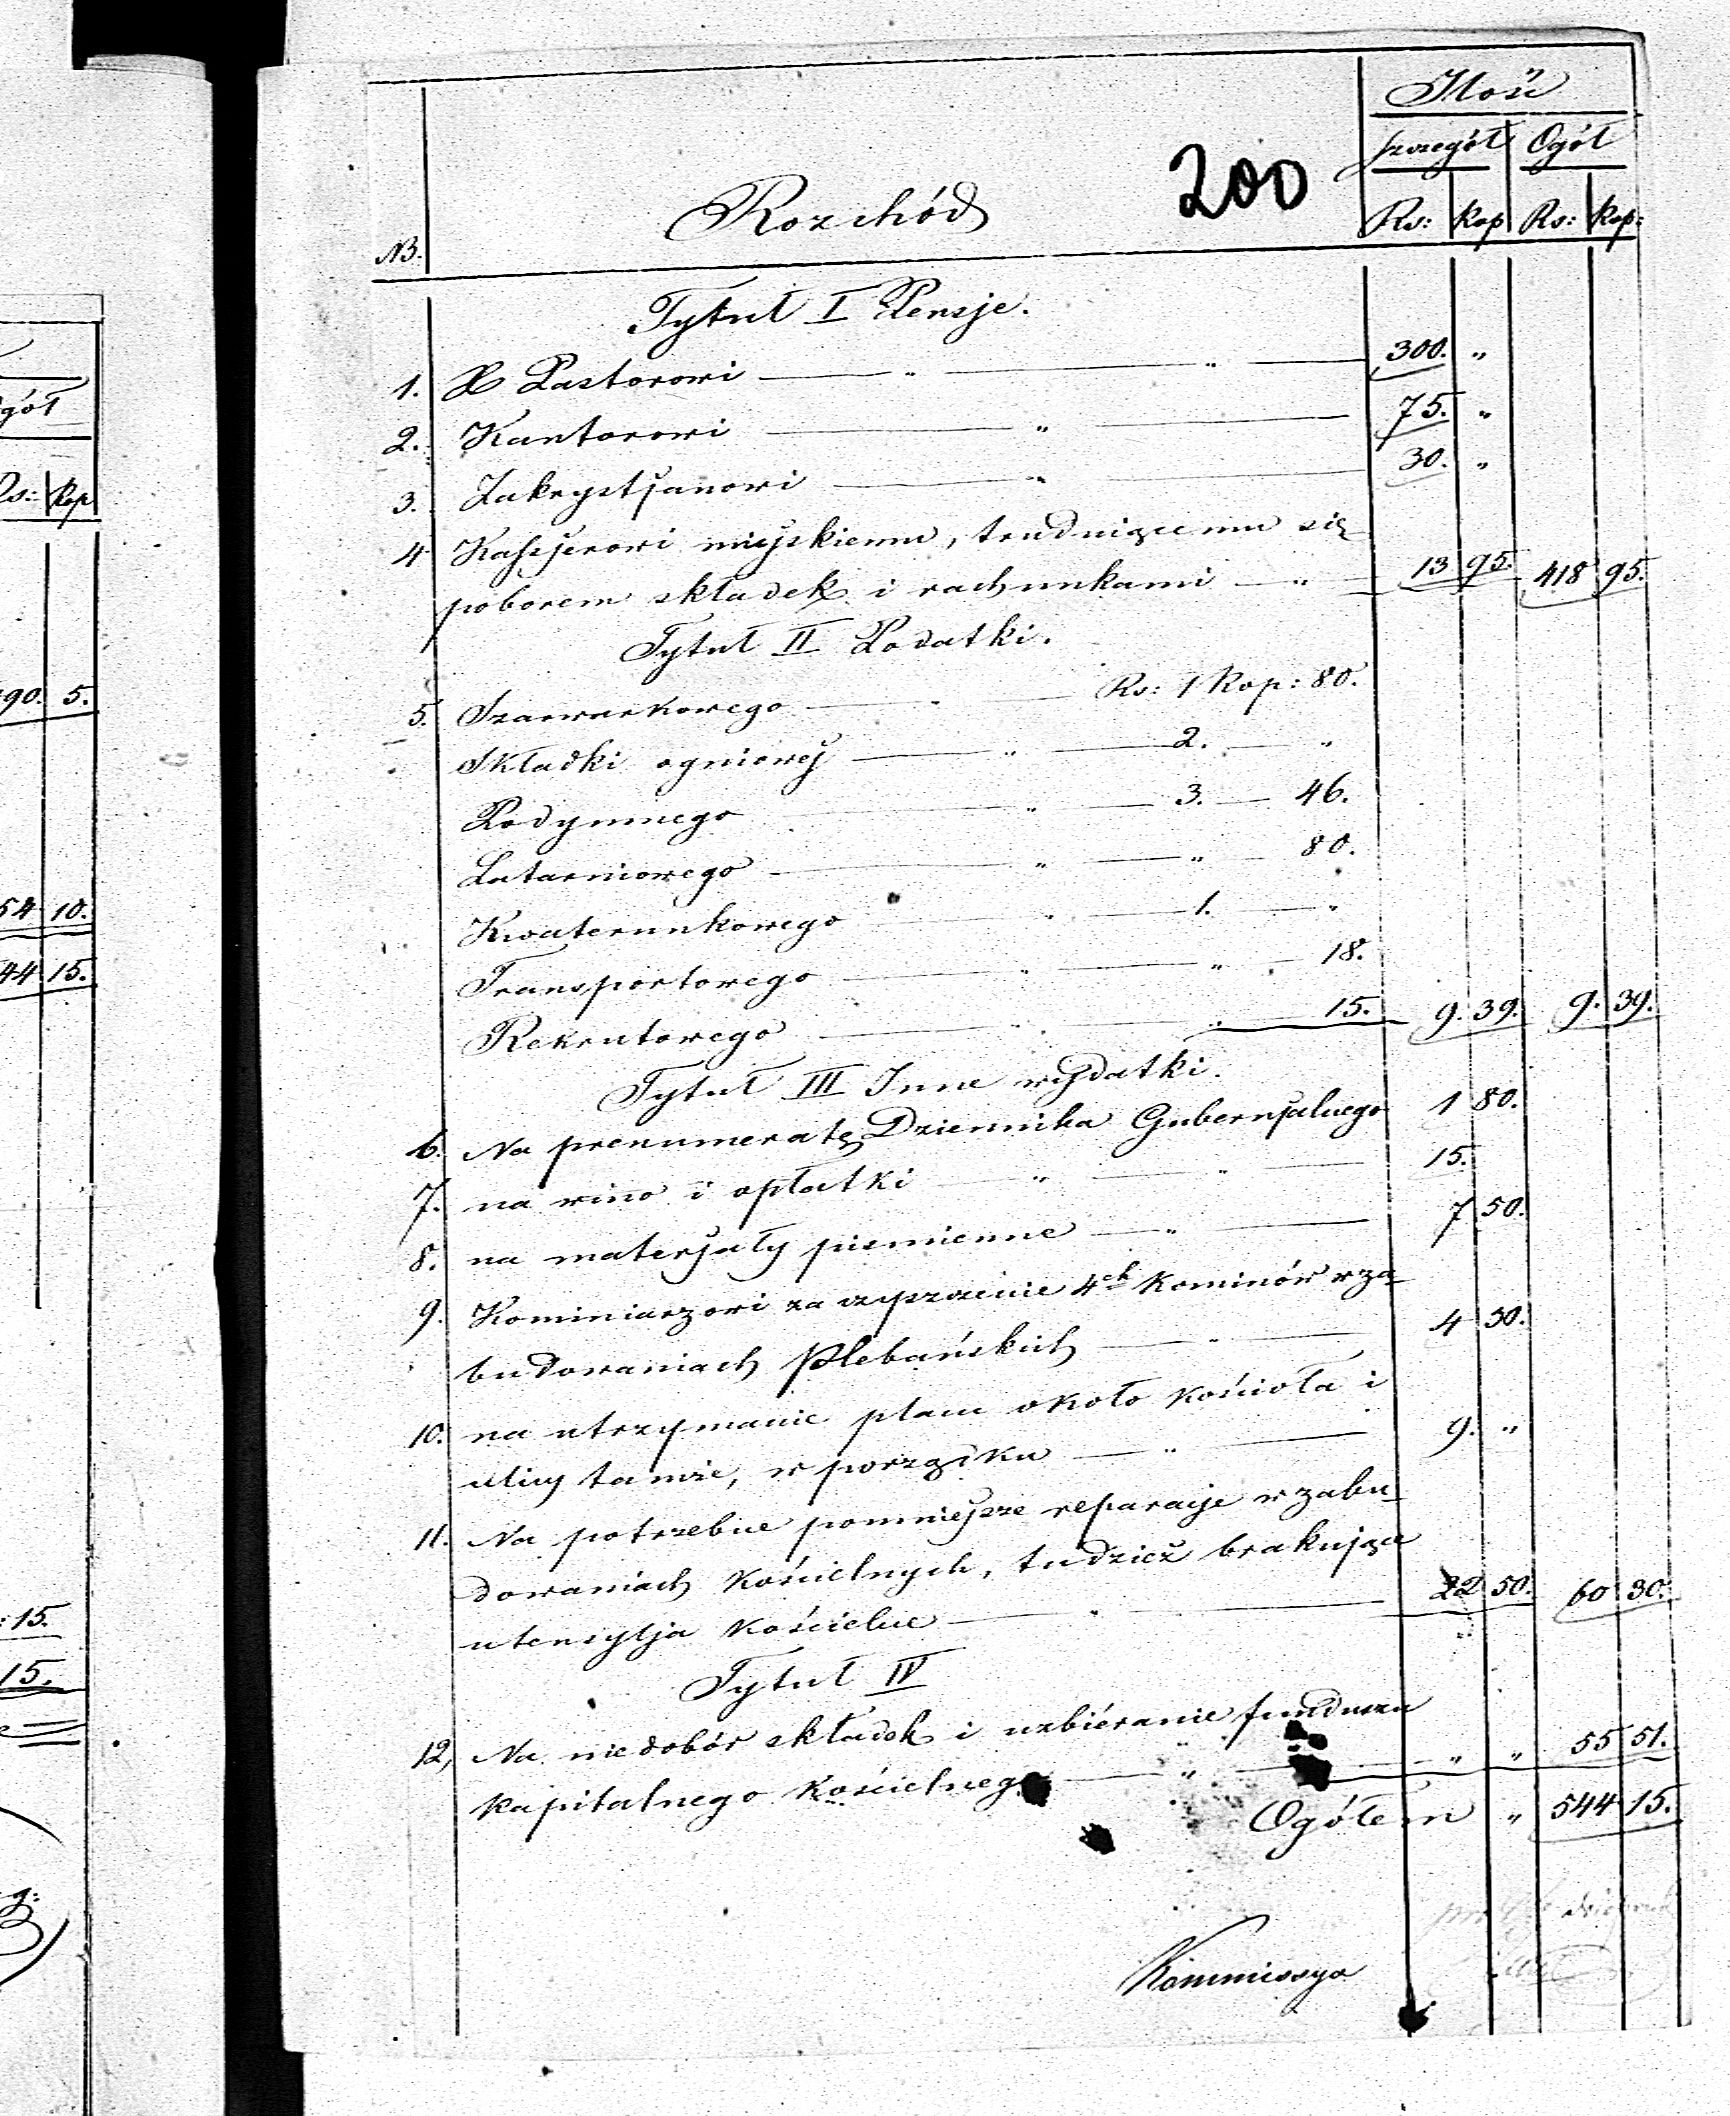 gół
Rs: Kop
90. 5.
54 10.
44 15.
15.
15.
200
Ilość
szczegół Ogół
NB. Rozchód Rs: Kop Rs: Kop:
Tytuł I Pensje.
1. X Pastorowi — " — " — 300. "
2. Kantorowi — " — 75. "
3. Zakrystjanowi — " — 30. "
4 Kassjerowi miejskiemu, trudniącemu się
poborem składek i rachunkami — " — 13 95. 418 95.
Tytuł II Podatki.
5. Szarwarkowego — " — Rs: 1 Kop: 80.
Składki ogniowej — " — 2. — "
Podymnego — " — 3. — 46.
Latarniowego — " — " — 80.
Kwaterunkowego — " — 1. — "
Transportowego — " — " — 18.
Rekrutowego — " — " — 15. 9. 39. 9. 39.
Tytuł III Inne wydatki.
6. Na prenumeratę Dziennika Gubernjalnego 1 80.
7. na wino i opłatki — " — " — 15.
8. na materjały piśmienne — " — 7 50.
9. Kominiarzowi za czyszczenie 4ch kominów w za-
budowaniach Plebańskich — " — 4 50.
10. na utrzymanie placu około kościoła i
ulicy tamże, w porządku — " — 9. "
11. Na potrzebne pomniejsze reparacje w zabu-
dowaniach kościelnych, tudzież brakujące
utensylja kościelne — " — 22 50. 60 30.
Tytuł IV
12, Na niedobór składek i uzbiéranie funduszu
kapitalnego kościelnego — " — " " 55 51.
Ogółem " 544 15.
Kommissya